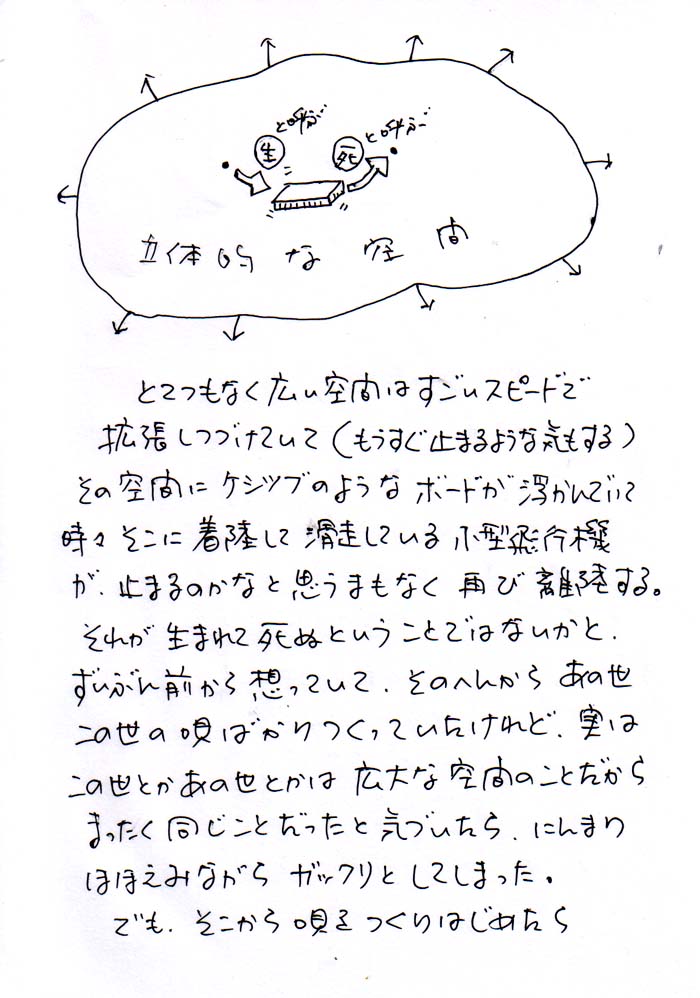 生 と呼ぶ…
死 と呼ぶ…
立体的な空間
とてつもなく広い空間はすごいスピードで
拡張しつづけていて(もうすぐ止まるような気もする)
その空間にケシツブのようなボードが浮かんでいて
時々そこに着陸して滑走している小型飛行機
が、止まるのかなと思うまもなく再び離陸する。
それが生まれて死ぬということではないかと、
ずいぶん前から想っていて、そのへんからあの世
この世の唄ばかりつくっていたけれど、実は
この世とかあの世とかは広大な空間のことだから
まったく同じことだったと気づいたら、にんまり
ほほえみながらガックリとしてしまった。
でも、そこから唄をつくりはじめたら